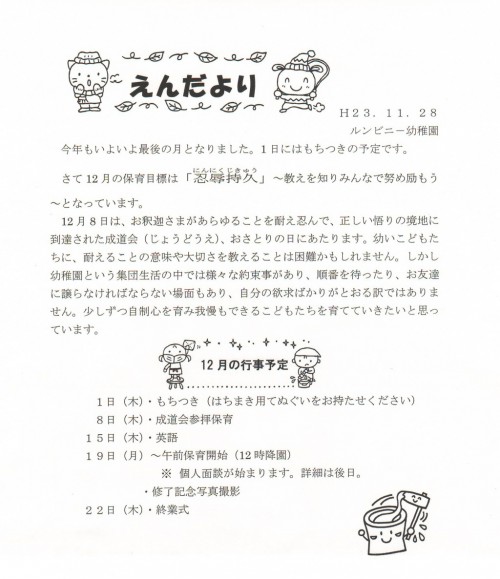 えんだより
H23.11.28
ルンビニー幼稚園
今年もいよいよ最後の月となりました。1日にはもちつきの予定です。
さて12月の保育目標は「忍辱持久」～教えを知りみんなで努め励もう
にんにくじきゅう
～となっています。
12月8日は、お釈迦さまがあらゆることを耐え忍んで、正しい悟りの境地
に到達された成道会（じょうどうえ）、おさとりの日にあたります。幼いこどもた
ちに、耐えることの意味や大切さを教えることは困難かもしれません。しかし
幼稚園という集団生活の中では様々な約束事があり、順番を待ったり、お友達
に譲らなければならない場面もあり、自分の欲求ばかりがとおる訳ではありま
せん。少しずつ自制心を育み我慢もできるこどもたちを育てていきたいと思っ
ています。
12月の行事予定
1日（木）・もちつき（はちまき用てぬぐいをお持たせください）
8日（木）・成道会参拝保育
15日（木）・英語
19日（月）～午前保育開始（12時降園）
※ 個人面談が始まります。詳細は後日。
・修了記念写真撮影
22日（木）・終業式